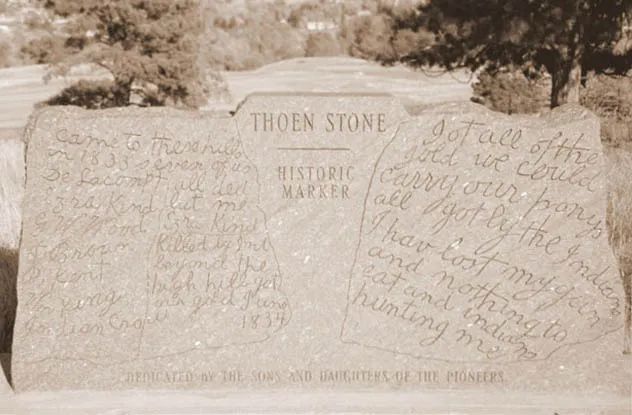 THOEN STONE
HISTORIC
MARKER
Came to these hills
in 1833 seven of us
De Lacompt
Ezra Kind
G W Wood
T Brown
R Kent
Wm King
Indian Crow
all ded
but me
Ezra Kind
Killed by Ind
beyond the
high hill got
our gold June
1834
Got all of the
gold we could
carry our ponys
all got by the Indians
I hav lost my gun
and nothing to
eat and indians
hunting me
DEDICATED BY THE SONS AND DAUGHTERS OF THE PIONEERS